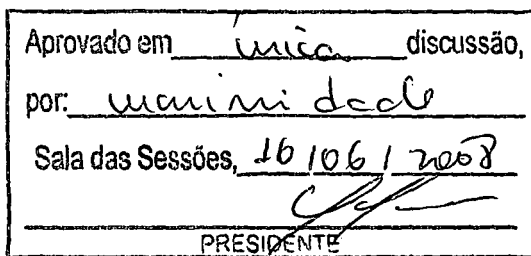 Aprovado em única discussão,
por: unanimidade
Sala das Sessões, 16 / 06 / 2008
PRESIDENTE